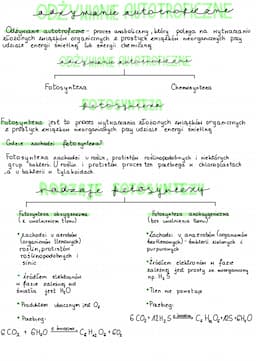 odżywianie autotroficzne
Odżywianie autotroficzne - proces anaboliczny, który polega na wytwarzaniu
złożonych związków organicznych z prostych związków nieorganicznych przy
udziale energii świetlnej lub energii chemicznej
odżywianie autotroficzne
Fotosynteza Chemosynteza
fotosynteza
Fotosynteza jest to proces wytwarzania złożonych związków organicznych
z prostych związków nieorganicznych przy udziale energii świetlnej
Gdzie zachodzi fotosynteza?
Fotosynteza zachodzi u roślin, protistów roślinopodobnych i niektórych
grup bakterii. U roślin i protistów proces ten przebiega w chloroplastach
a u bakterii w tylakoidach
rodzaje fotosyntezy
Fotosynteza oksygeniczna
(z uwolnieniem tlenu)
• zachodzi u aerobów
(organizmów tlenowych)
roślin, protistów
roślinopodobnych i
sinic
• źródłem elektronów
w fazie zależnej od
światła jest H₂O
• Produktem ubocznym jest O₂
• Przebieg:
6 CO₂ + 6H₂O → C₆H₁₂O₆ + 6O₂
Fotosynteza anoksygeniczna
(bez uwolnienia tlenu)
• Zachodzi u anaerobów (organizmów
beztlenowych) - bakterii zielonych i
purpurowych
• Źródłem elektronów w fazie
zależnej jest prosty zw. nieorganiczny
np. H₂S
• Tlen nie powstaje
• Przebieg:
6 CO₂ + 12H₂S → C₆H₁₂O₆ + 12S + 6H₂O